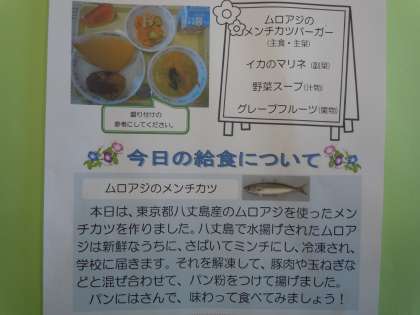 ムロアジの
メンチカツバーガー
(主食・主菜)
イカのマリネ(副菜)
野菜スープ(汁物)
グレープフルーツ(果物)
盛り付けの
参考にしてください。
今日の給食について
ムロアジのメンチカツ
本日は、東京都八丈島産のムロアジを使ったメン
チカツを作りました。八丈島で水揚げされたムロア
ジは新鮮なうちに、さばいてミンチにし、冷凍され、
学校に届きます。それを解凍して、豚肉や玉ねぎな
どと混ぜ合わせて、パン粉をつけて揚げました。
パンにはさんで、味わって食べてみましょう！